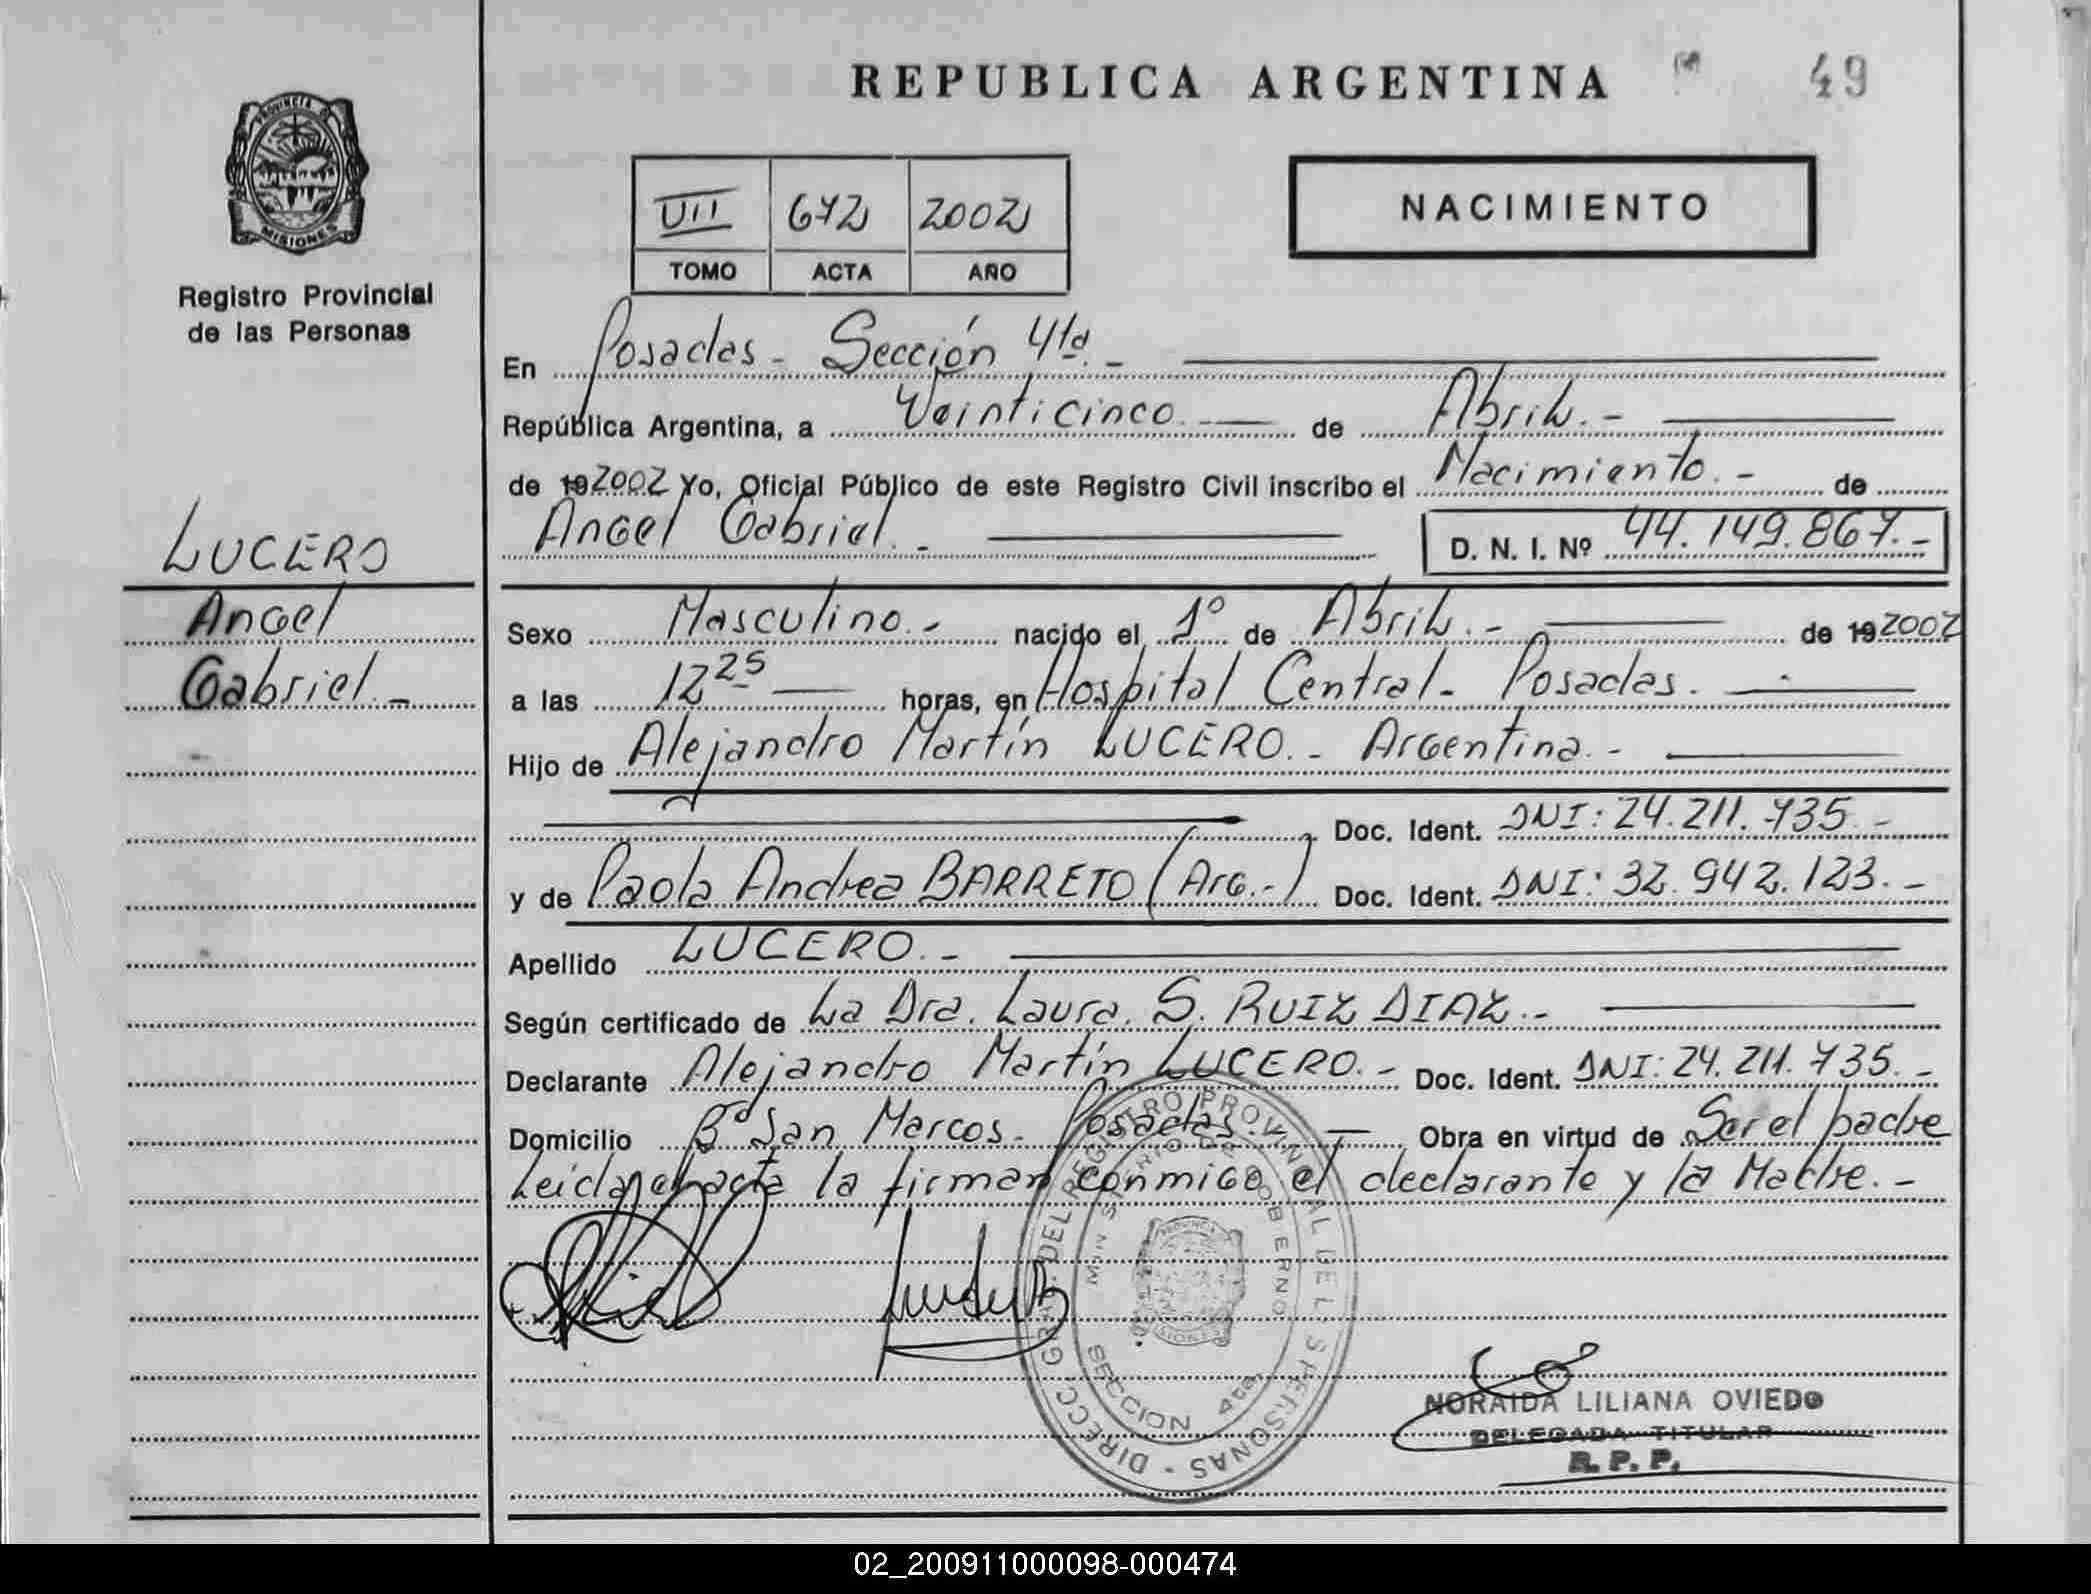 REPUBLICA ARGENTINA
49
PROVINCIA DE
MISIONES
Registro Provincial
de las Personas
VII 672 2002
TOMO ACTA AÑO
NACIMIENTO
En Posadas - Sección 4ta. -
República Argentina, a Veinticinco. de Abril. -
de 19 2002 Yo, Oficial Público de este Registro Civil inscribo el Nacimiento. - de
Angel Gabriel. -
D. N. I. Nº 44.149.867. -
LUCERO
Angel
Gabriel. -
Sexo Masculino. - nacido el 1º de Abril. - de 19 2002
a las 12 25 horas, en Hospital Central - Posadas.
Hijo de Alejandro Martín LUCERO. - Argentina. -
Doc. Ident. DNI: 24.211.735. -
y de Paola Andrea BARRETO (Arg. -) Doc. Ident. DNI: 32.942.123. -
Apellido LUCERO. -
Según certificado de La Dra. Laura. S. RUIZ DIAZ. -
Declarante Alejandro Martín LUCERO. - Doc. Ident. DNI: 24.211.735. -
Domicilio Bº San Marcos - Posadas - Obra en virtud de Ser el padre
Leida el acta la firman conmigo el declarante y la Madre. -
DIRECC. GRAL. DEL REGISTRO PROVINCIAL DE L S PERSONAS -
MINISTERIO DE GOBIERNO
SECCION 4ta.
NORAIDA LILIANA OVIEDO
DELEGADA TITULAR
R. P. P.
02_200911000098-000474